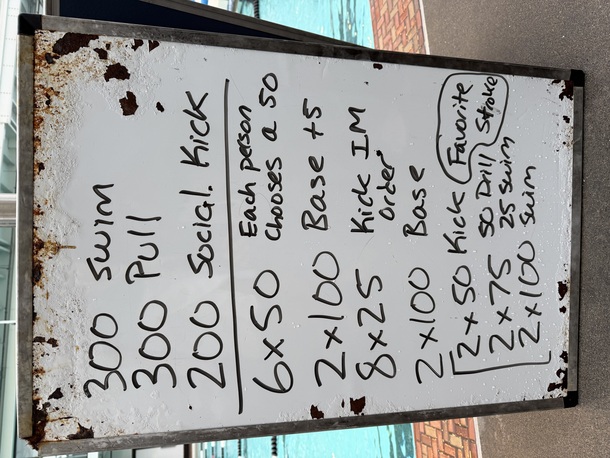 300 Swim
300 Pull
200 Social Kick
6x50 Each person
chooses a 50
2x100 Base +5
8x25 Kick IM
order
2x100 Base
2x50 Kick Favorite
2x75 50 Drill Stroke
25 swim
2x100 swim